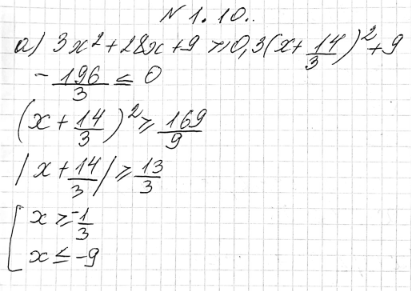 № 1.10..
а) 3x² + 28x + 9 ≥ 0, 3(x + 14/3)² + 9
- 196/3 ≤ 0
(x + 14/3)² ≥ 169/9
|x + 14/3| ≥ 13/3
[ x ≥ -1/3
x ≤ -9